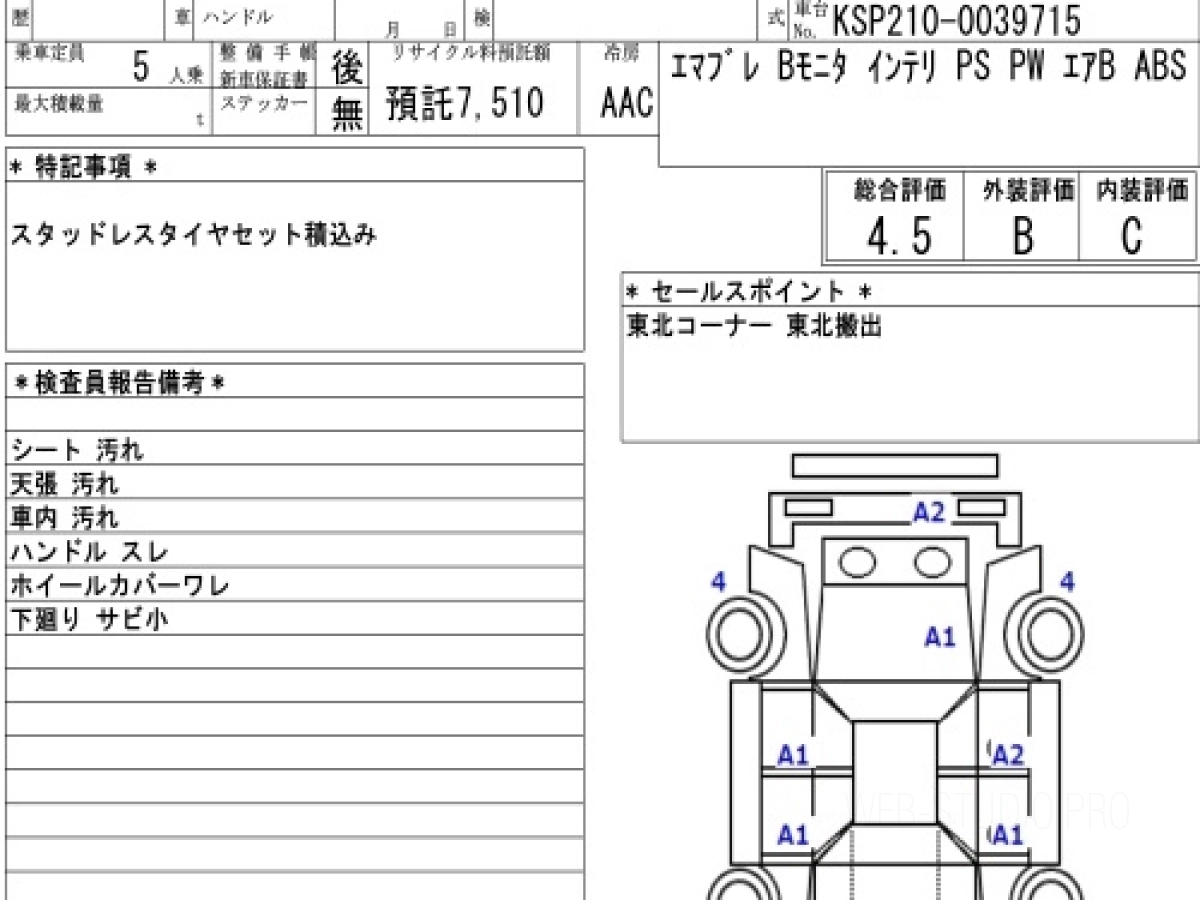 歴 車 ハンドル 月 日 検 式 車台No. KSP210-0039715
乗車定員 5 人乗 整備手帳 後 リサイクル料預託額 冷房 エマブレ Bモニタ インテリ PS PW エアB ABS
新車保証書
最大積載量 t ステッカー 無 預託7,510 AAC
* 特記事項 *
スタッドレスタイヤセット積込み
総合評価 外装評価 内装評価
4.5 B C
* セールスポイント *
東北コーナー 東北搬出
*検査員報告備考*
シート 汚れ
天張 汚れ
車内 汚れ
ハンドル スレ
ホイールカバーワレ
下廻り サビ小
A2
4 4
A1
A1 A2
A1 A1
WEB-STUDIO.PRO